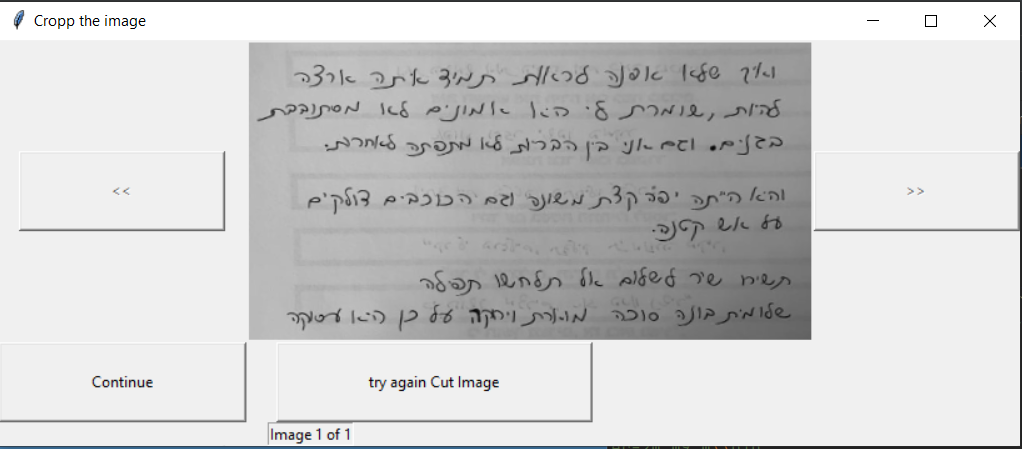 Cropp the image
ואיך שלא אפנה לראות תמיד איתה ארצה
להיות, שומרת לי היא אמונים לא מסתובבת
בגנים. וגם אני בין הבריות לא מתפתה לאחרות.
והיא הייתה יפה קצת משונה וגם הכוכבים דולקים
על אש קטנה.
תשירו שיר לשלום אל תלחשו תפילה
שלומית בונה סוכה מוארת וירוקה על כן היא עסוקה
<<
>>
Continue
try again Cut Image
Image 1 of 1